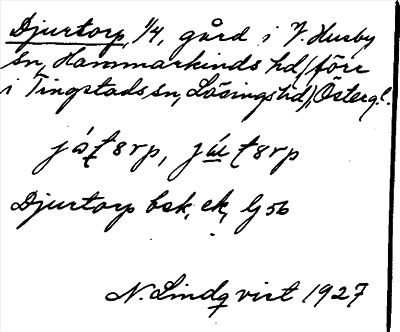 Djurtorp, 1/4, gård i V. Husby
sn, Hammarkinds hd, (förr
i Tingstads sn, Lösings hd), Östergl.
Djurtorp bsk, ek, Gj 56
N. Lindqvist 1927